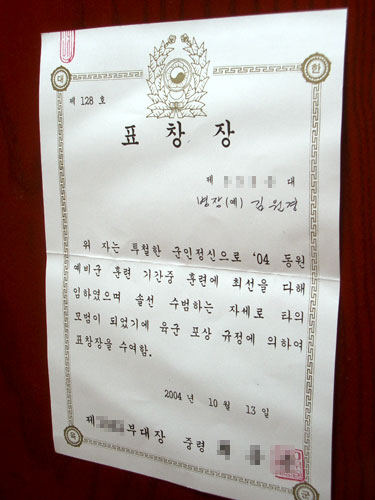 대 한
제 128 호
표 창 장
제 대
병장(예) 김원경
위 자는 투철한 군인정신으로 '04 동원
예비군 훈련 기간중 훈련에 최선을 다해
임하였으며 솔선 수범하는 자세로 타의
모범이 되었기에 육군 포상 규정에 의하여
표창장을 수여함.
2004 년 10 월 13 일
제 부대장 중령
육 군